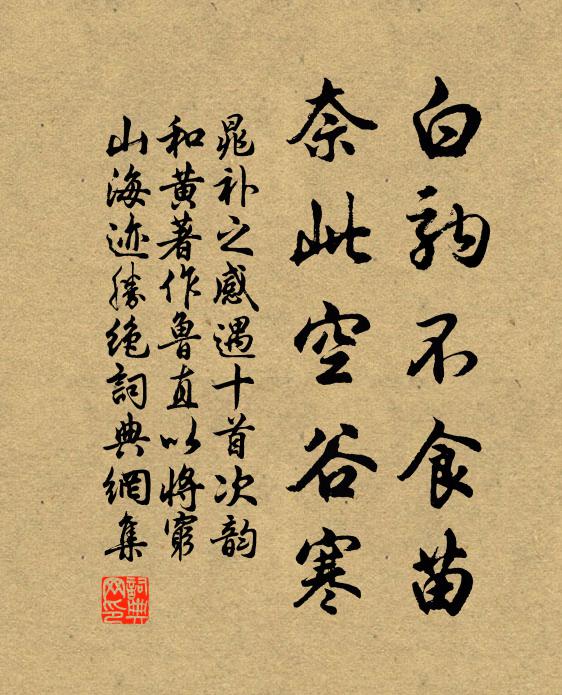 白駒不食苗
奈此空谷寒
晁补之感遇十首次韵
和黄著作魯直以將窮
山海迹勝绝詞典網集
詞典网印